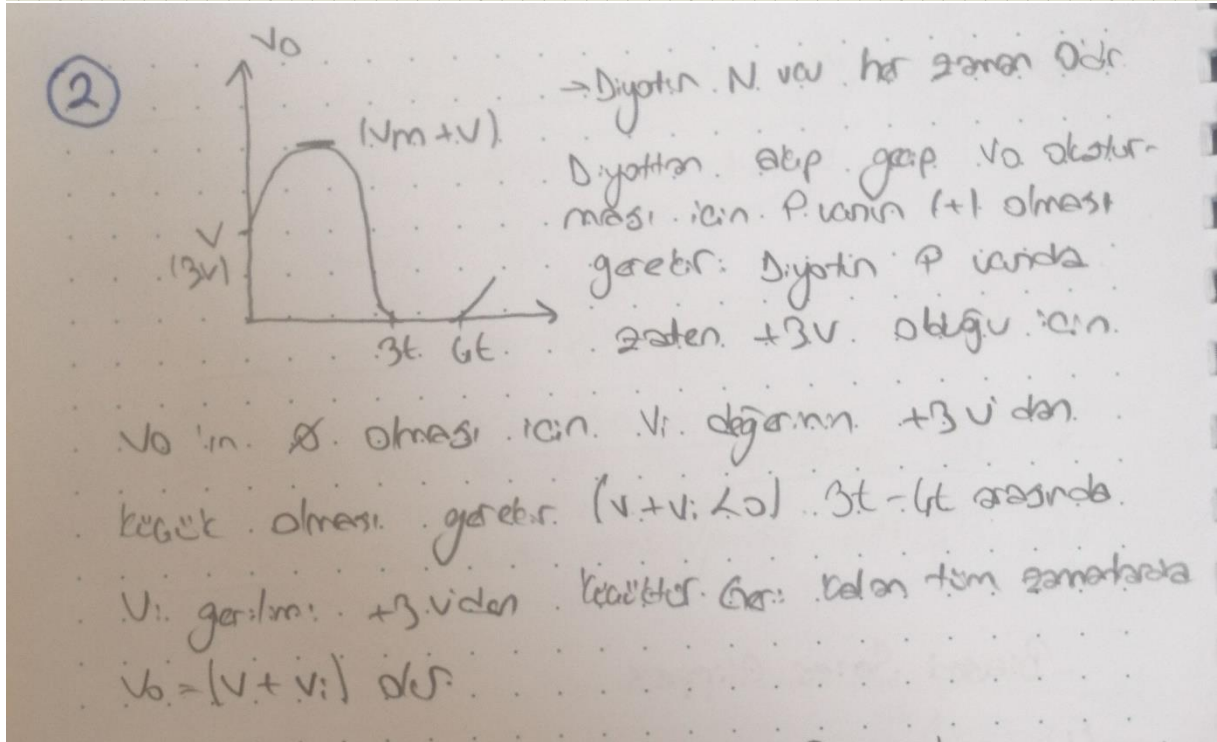 2
Vo
(Vm+V)
V
(3V)
3t 4t
→ Diyotun N ucu her zaman 0dır
Diyottan akıp geçip Vo oluştur-
ması için P ucunun (+) olması
gerekir. Diyotun P ucunda
zaten +3V olduğu için.
Vo 'ın 0 olması için Vi değerinin +3V'dan
küçük olması gerekir. (V+Vi<0) 3t-4t arasında
Vi gerilimi +3V'dan küçüktür. Geri kalan tüm zamanlarda
Vo=(V+Vi) olur.